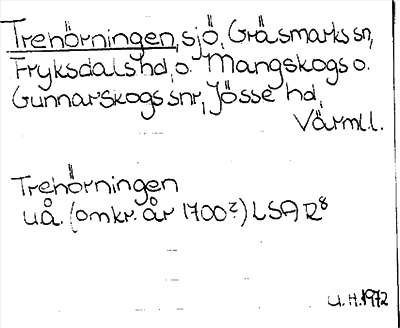 Trehörningen, sjö, Gräsmarks sn,
Fryksdals hd, o. Mangskogs o.
Gunnarskogs snr, Jösse hd,
Värml.
Trehörningen
u.å. (omkr. år 1700?) LSA R8
U.H. 1972